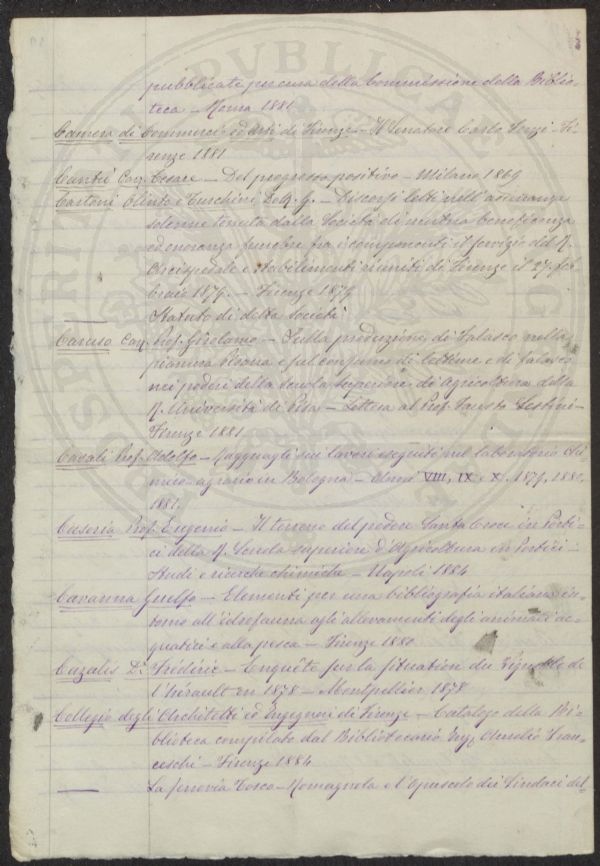 pubblicate per cura della Commissione della Biblio-
teca - Roma 1881
Camera di Commercio ed Arti di Firenze - Il Senatore Carlo Fenzi - Fi-
renze 1881
Cantù Cav. Cesare - Del progresso positivo - Milano 1869
Cantoni Olinto e Turchini Dott. G. - Discorsi letti nell'adunanza
solenne tenuta dalla Società di mutua beneficenza
ed onoranza funebre fra i componenti il servizio del R.
Arcispedale e Stabilimenti riuniti di Firenze il 27. feb
braio 1879. - Firenze 1879
Statuto di detta Società
Caruso Cav. Prof. Girolamo - Sulla produzione di Falasco nella
pianura Pisana e sul consumo di lettime e di falasco
nei poderi della scuola superiore di agricoltura della
R. Università di Pisa - Lettera al Prof. Fausto Sestini -
Firenze 1881
Casali Prof. Adolfo - Ragguagli sui lavori eseguiti nel laboratorio chi
mico-agrario in Bologna - Anni VIII, IX e X. 1879, 1880,
1881.
Casoria Prof. Eugenio - Il terreno del podere Santa Croce in Porti-
ci della R. Scuola superiore d'Agricoltura in Portici -
Studi e ricerche chimiche - Napoli 1884
Cavanna Guelfo - Elementi per una bibliografia italiana in-
torno all'idrofauna agli allevamenti degli animali ac-
quatici e alla pesca - Firenze 1880
Cazalis Dr. Frédéric - Enquête sur la situation des vignobles de
l'Hérault en 1878 - Montpellier 1878
Collegio degli Architetti ed Ingegneri di Firenze - Catalogo della Bi-
blioteca compilato dal Bibliotecario Ing. Aurelio Fran-
ceschi - Firenze 1884
La ferrovia Tosco-Romagnola e l'Opuscolo dei Sindaci del-